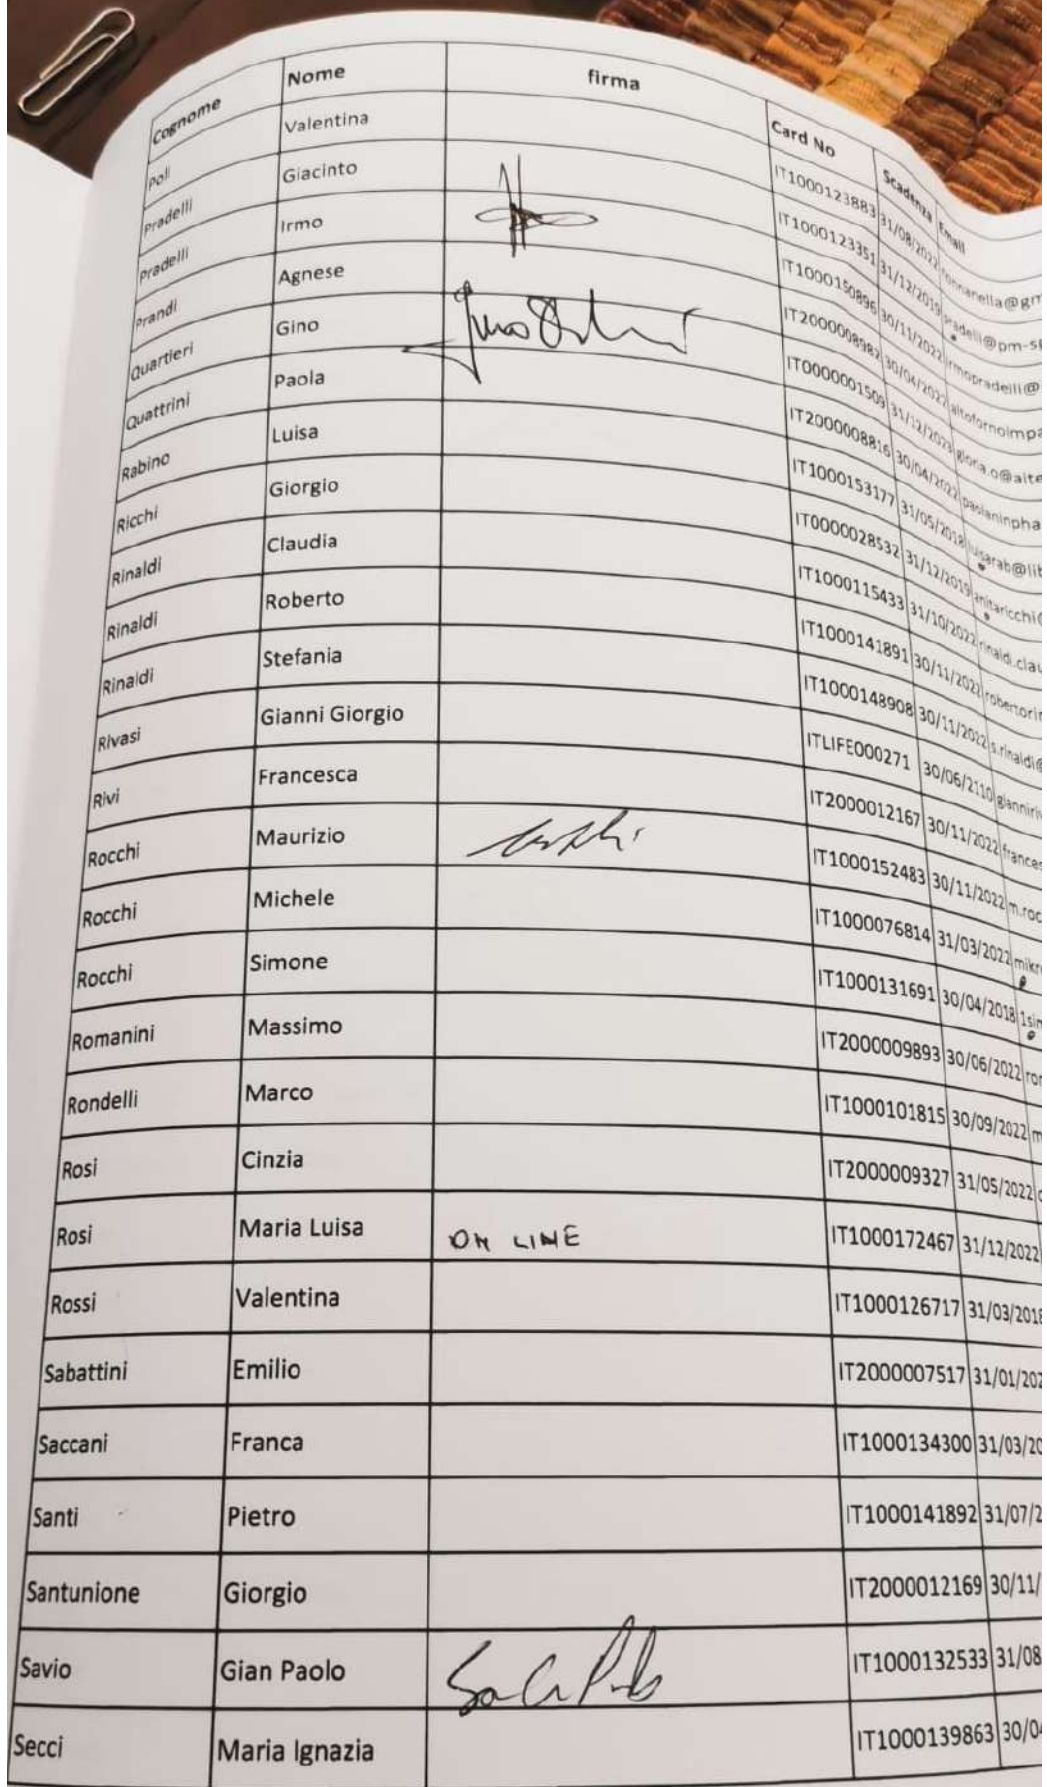 Cognome Nome firma Card No Scadenza Email
Poli Valentina IT1000123883 31/08/2022
Pradelli Giacinto IT1000123351 31/12/2019 pradelli@pm-s
Pradelli Irmo IT1000150896 30/11/2022 irmopradelli@
Prandi Agnese IT2000008982 30/04/2022 altofornoimpa
Quartieri Gino IT0000001509 31/12/2023 gloria.o@aite
Quattrini Paola IT2000008816 30/04/2022 paolaninpha
Rabino Luisa IT1000153177 31/05/2018 luisarab@lib
Ricchi Giorgio IT0000028532 31/12/2019 anitaricchi@
Rinaldi Claudia IT1000115433 31/10/2022 rinaldi.clau
Rinaldi Roberto IT1000141891 30/11/2022 robertorin
Rinaldi Stefania IT1000148908 30/11/2022 s.rinaldi@
Rivasi Gianni Giorgio ITLIFE000271 30/06/2110 gianniriv
Rivi Francesca IT2000012167 30/11/2022 frances
Rocchi Maurizio IT1000152483 30/11/2022 m.roc
Rocchi Michele IT1000076814 31/03/2022 mikr
Rocchi Simone IT1000131691 30/04/2018 1sin
Romanini Massimo IT2000009893 30/06/2022 ror
Rondelli Marco IT1000101815 30/09/2022 m
Rosi Cinzia IT2000009327 31/05/2022
Rosi Maria Luisa ON LINE IT1000172467 31/12/2022
Rossi Valentina IT1000126717 31/03/2018
Sabattini Emilio IT2000007517 31/01/202
Saccani Franca IT1000134300 31/03/20
Santi Pietro IT1000141892 31/07/2
Santunione Giorgio IT2000012169 30/11/
Savio Gian Paolo IT1000132533 31/08
Secci Maria Ignazia IT1000139863 30/04